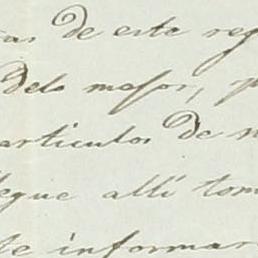 as de este reg
Delo mejor, p
articulos de n
egue alli tom
te informar